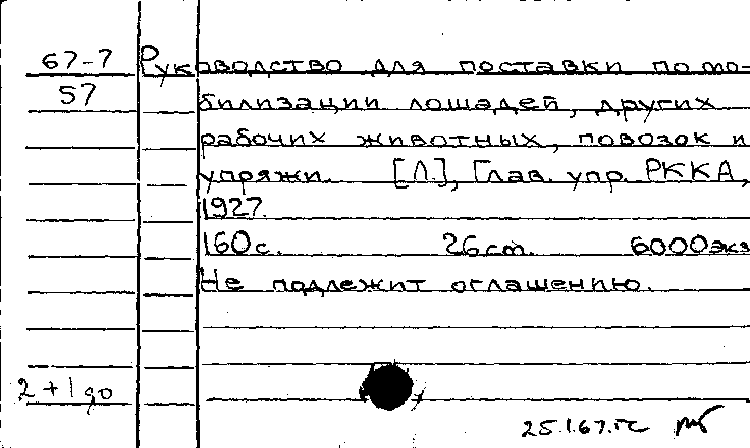 67-7 Руководство для поставки по мо-
57 билизации лошадей, других
рабочих животных, повозок и
упряжи. [Л.], Глав. упр. РККА,
1927.
160с. 26см. 6000экз
Не подлежит оглашению.
2+1 до
25.1.67.